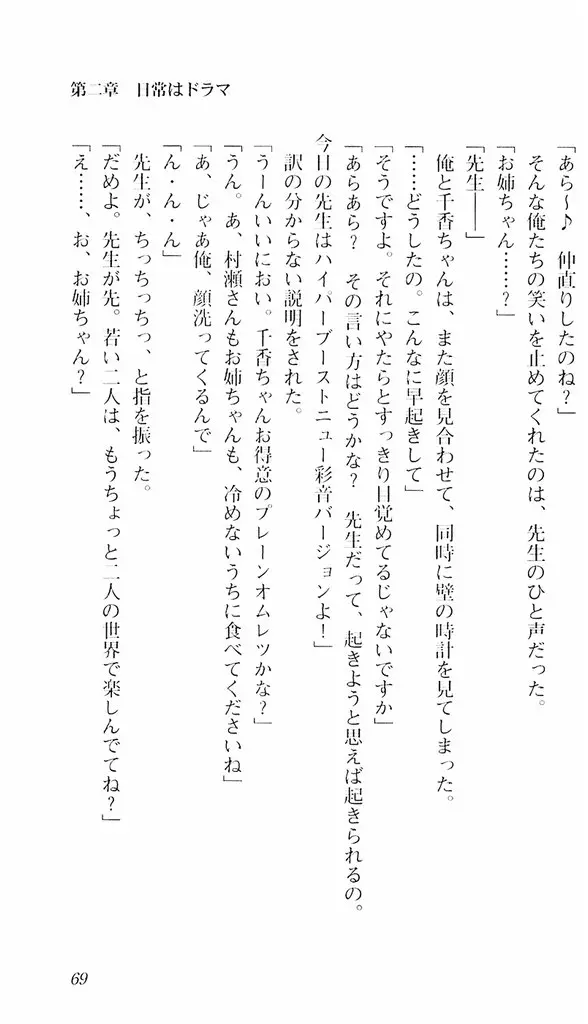 第二章　日常はドラマ
「あら～♪　仲直りしたのね？」
そんな俺たちの笑いを止めてくれたのは、先生のひと声だった。
「お姉ちゃん……？」
「先生――」
俺と千香ちゃんは、また顔を見合わせて、同時に壁の時計を見てしまった。
「……どうしたの。こんなに早起きして」
「そうですよ。それにやたらとすっきり目覚めてるじゃないですか」
「あらあら？　その言い方はどうかな？　先生だって、起きようと思えば起きられるの。
今日の先生はハイパーブーストニュー彩音バージョンよ！」
訳の分からない説明をされた。
「うーんいいにおい。千香ちゃんお得意のプレーンオムレツかな？」
「うん。あ、村瀬さんもお姉ちゃんも、冷めないうちに食べてくださいね」
「あ、じゃあ俺、顔洗ってくるんで」
「ん・ん・ん」
先生が、ちっちっちっ、と指を振った。
「だめよ。先生が先。若い二人は、もうちょっと二人の世界で楽しんでてね？」
「え……、お、お姉ちゃん？」
69